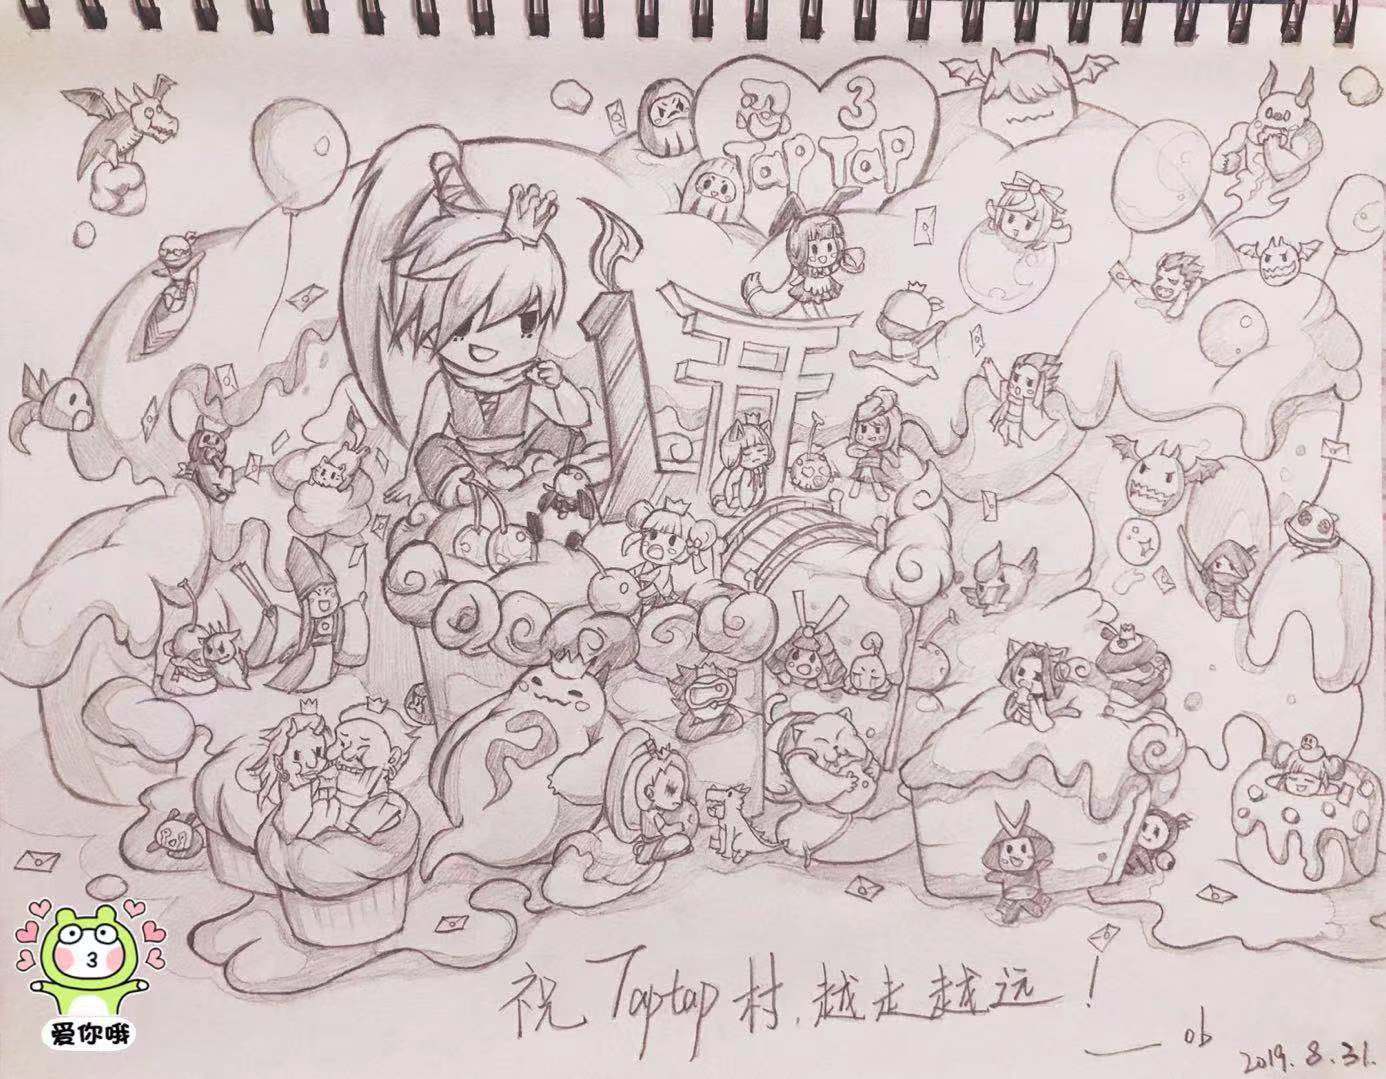 忍 3
TapTap
祝 Taptap 村，越走越远！
—— ob
2019.8.31.
爱你哦